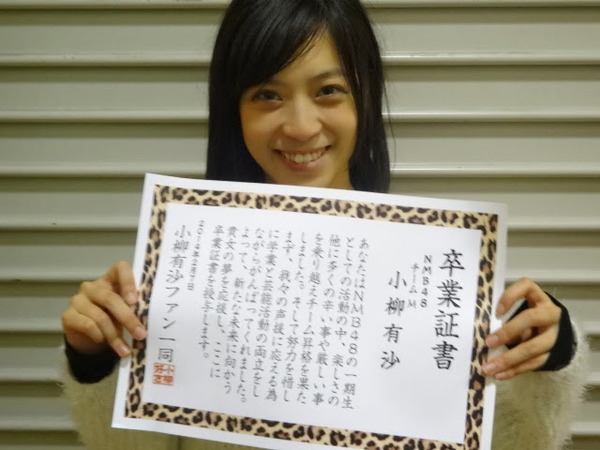 卒業証書
NMB48
チームM
小柳有沙
あなたはNMB48の一期生
としての活動の中、楽しさの
他に多くの辛い事や厳しい事
を乗り越えチーム昇格を果た
しました。そして努力を惜し
まず、我々の声援に応える為
に学業と芸能活動の両立をし
ながらがんばってくれました。
よって、新たな未来に向かう
貴女の夢を応援し、ここに
卒業証書を授与します。
2014年2月7日
小柳有沙ファン一同